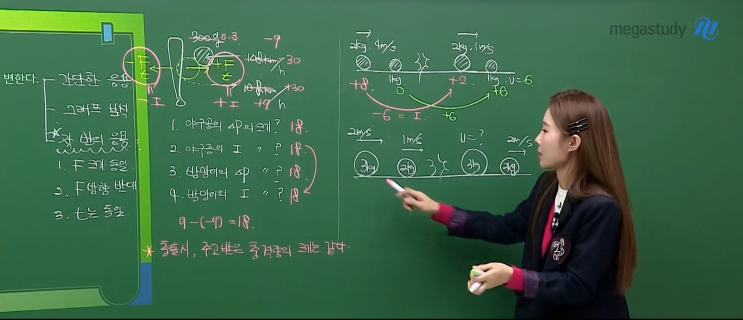 megastudy
변한다.
간단한 응용
그래프 분석
1. F크기 동일
2. F방향 반대
3. t는 동일
300g 0.3
-9
-F
+F
t
t
-I
+I
30
+30
+9
h
h
1. 야구공의 ΔP의 크기? 18.
2. 야구공의 I 〃 ? 18.
3. 방망이의 ΔP 〃 ? 18.
4. 방망이의 I 〃 ? 18.
9-(-9)=18.
* 충돌시, 주고받은 충격량의 크기는 같다.
2kg, 4m/s
2kg, 1m/s
1kg
1kg, υ=6
+8
0
+2
+6
-6=I
+6
2m/s
1m/s
υ=?
2m/s
3kg
2kg
3kg
2kg